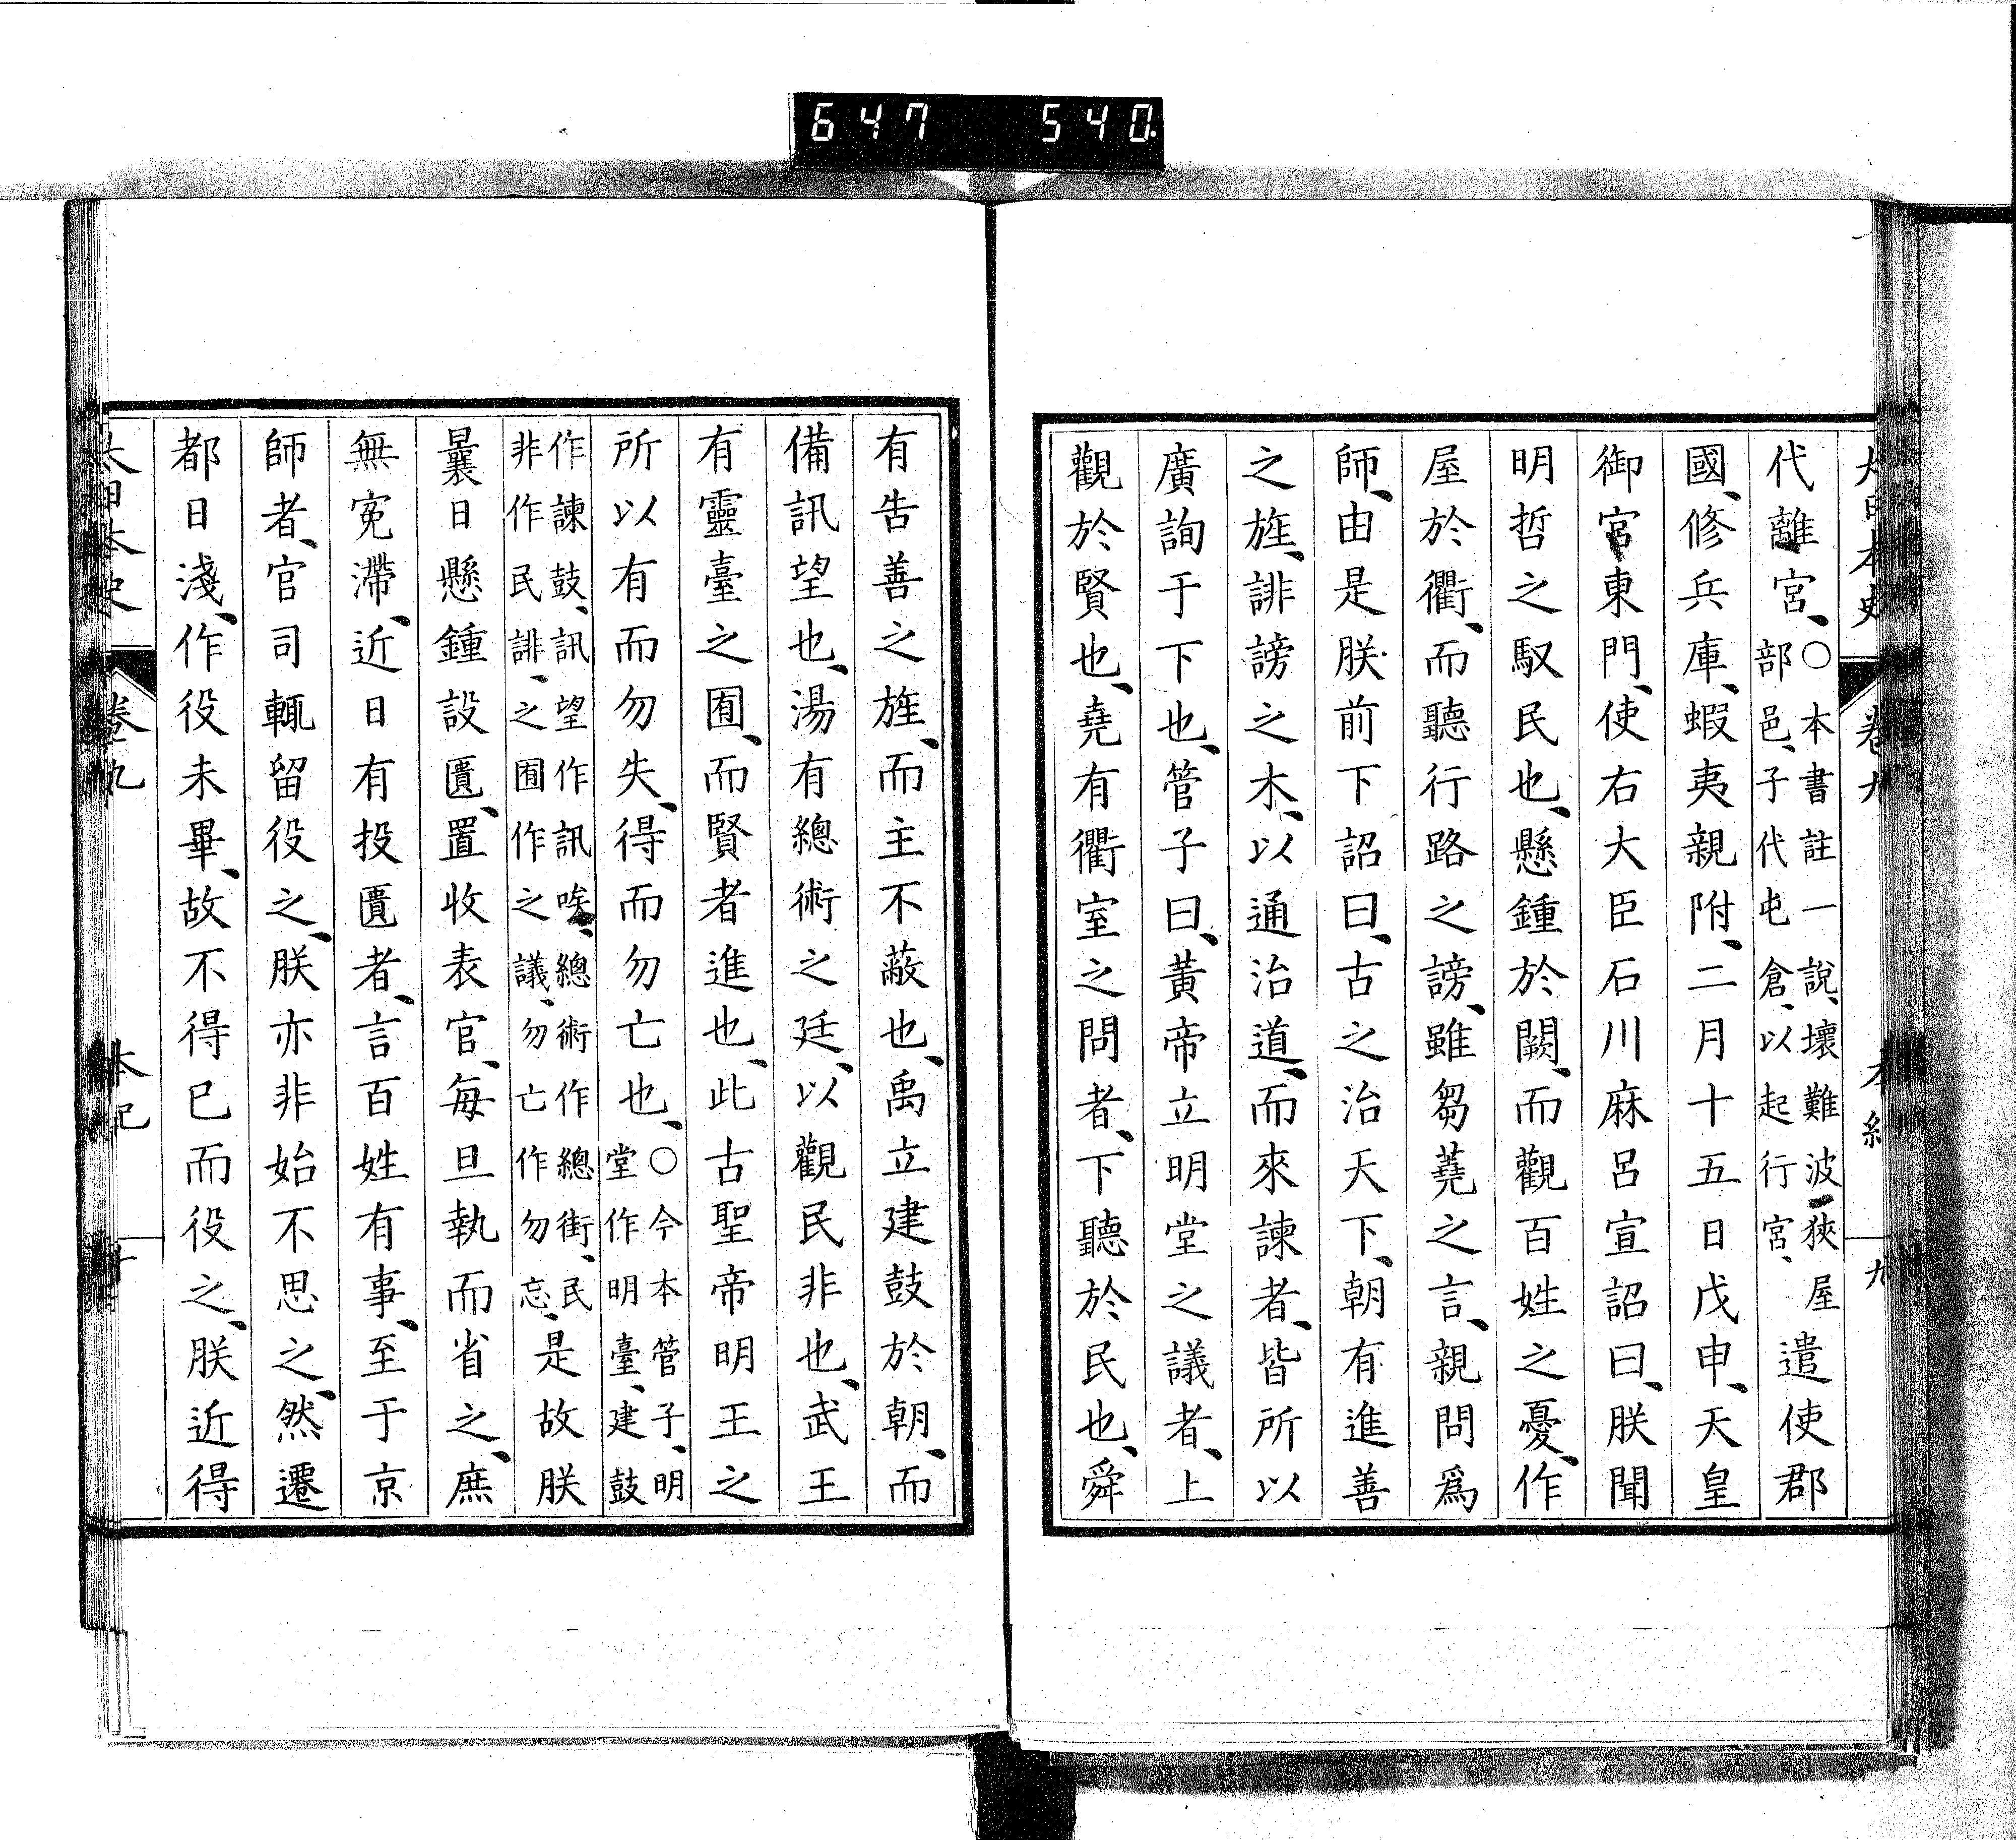 647 540
大日本史 卷九 本紀 九
代離宮、○本書註一説、壞難波狹屋部邑、子代屯倉、以起行宮、遣使郡
國、修兵庫、蝦夷親附、二月十五日戊申、天皇
御宮東門、使右大臣石川麻呂宣詔曰、朕聞
明哲之馭民也、懸鍾於闕、而觀百姓之憂、作
屋於衢、而聽行路之謗、雖芻蕘之言、親問爲
師、由是朕前下詔曰、古之治天下、朝有進善
之旌、誹謗之木、以通治道、而來諫者、皆所以
廣詢于下也、管子曰、黃帝立明堂之議者、上
觀於賢也、堯有衢室之問者、下聽於民也、舜
有告善之旌、而主不蔽也、禹立建鼓於朝、而
備訊望也、湯有總術之廷、以觀民非也、武王
有靈臺之囿、而賢者進也、此古聖帝明王之
所以有而勿失、得而勿亡也、○今本管子、明堂作明臺、建鼓
作諫鼓、訊望作訊唉、總術作總街、民非作民誹、之囿作之議、勿亡作勿忘、是故朕
曩日懸鍾設匱、置收表官、每旦執而省之、庶
無寃滯、近日有投匱者、言百姓有事、至于京
師者、官司輒留役之、朕亦非始不思之、然遷
都日淺、作役未畢、故不得已而役之、朕近得
大日本史 卷九 本紀 十